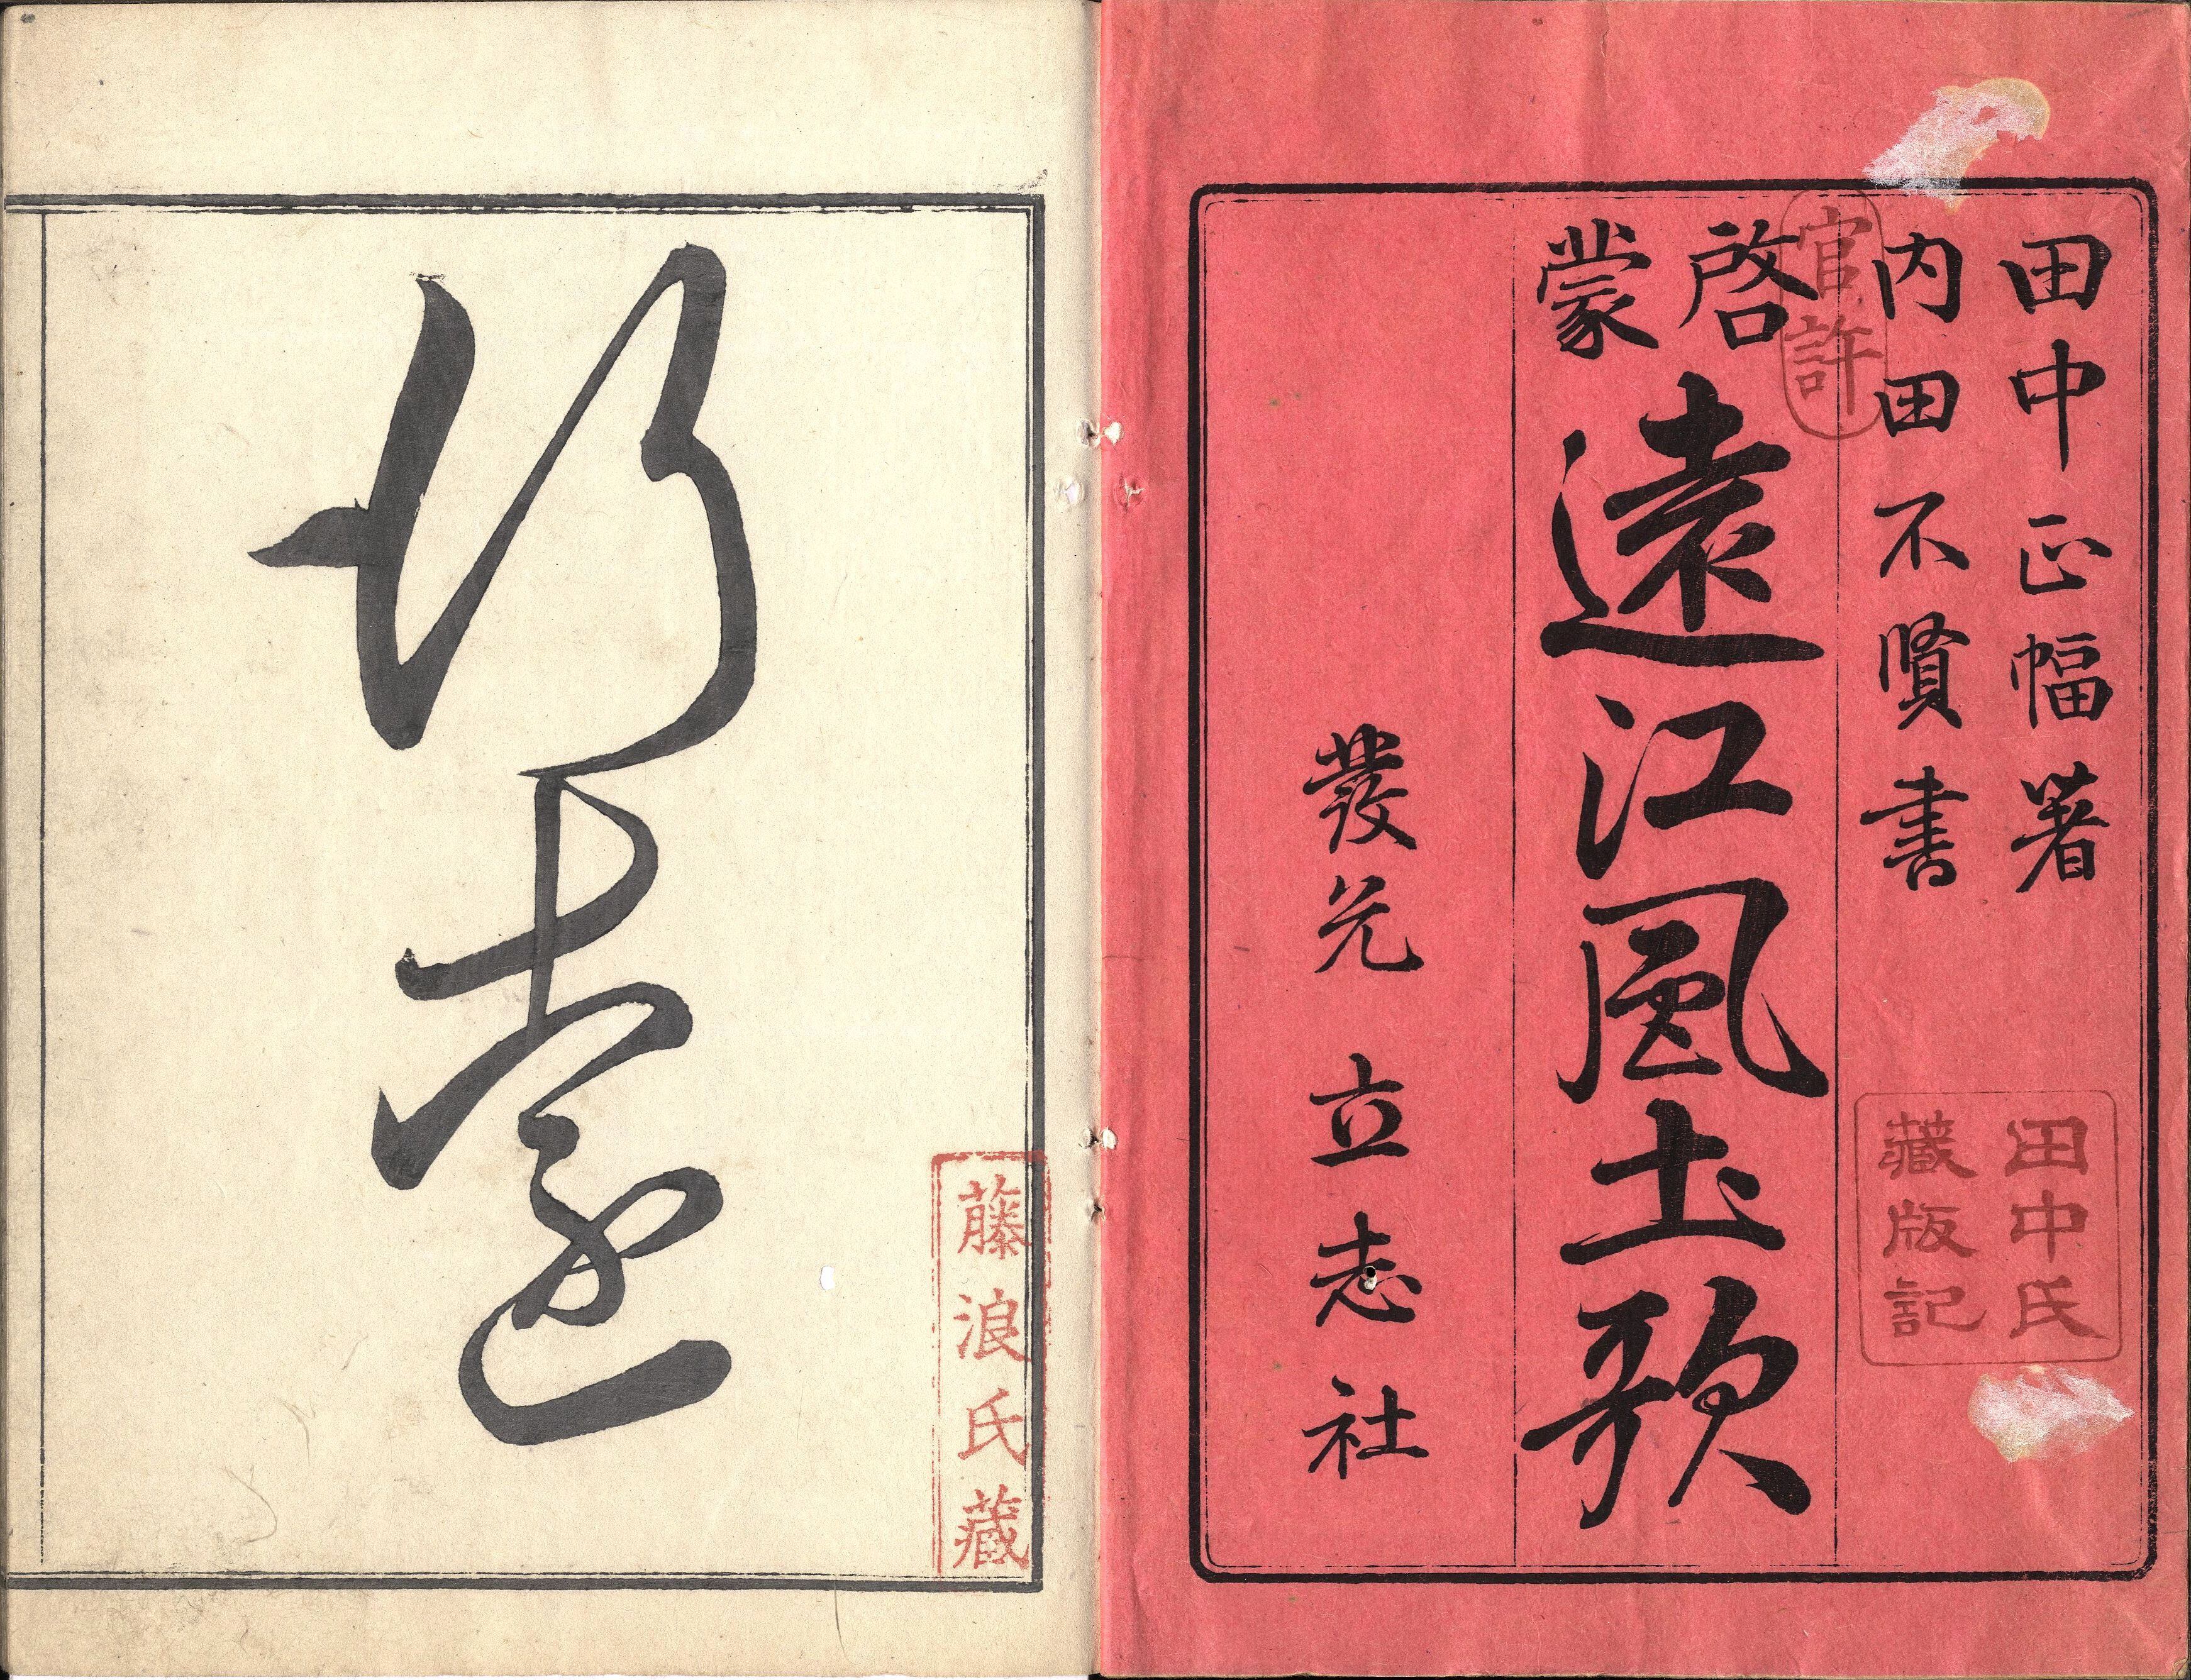 田中正幅著
内田不賢書
官許
啓蒙
遠江風土歌
發兌 立志社
田中氏
藏版記
行遠
藤浪氏藏